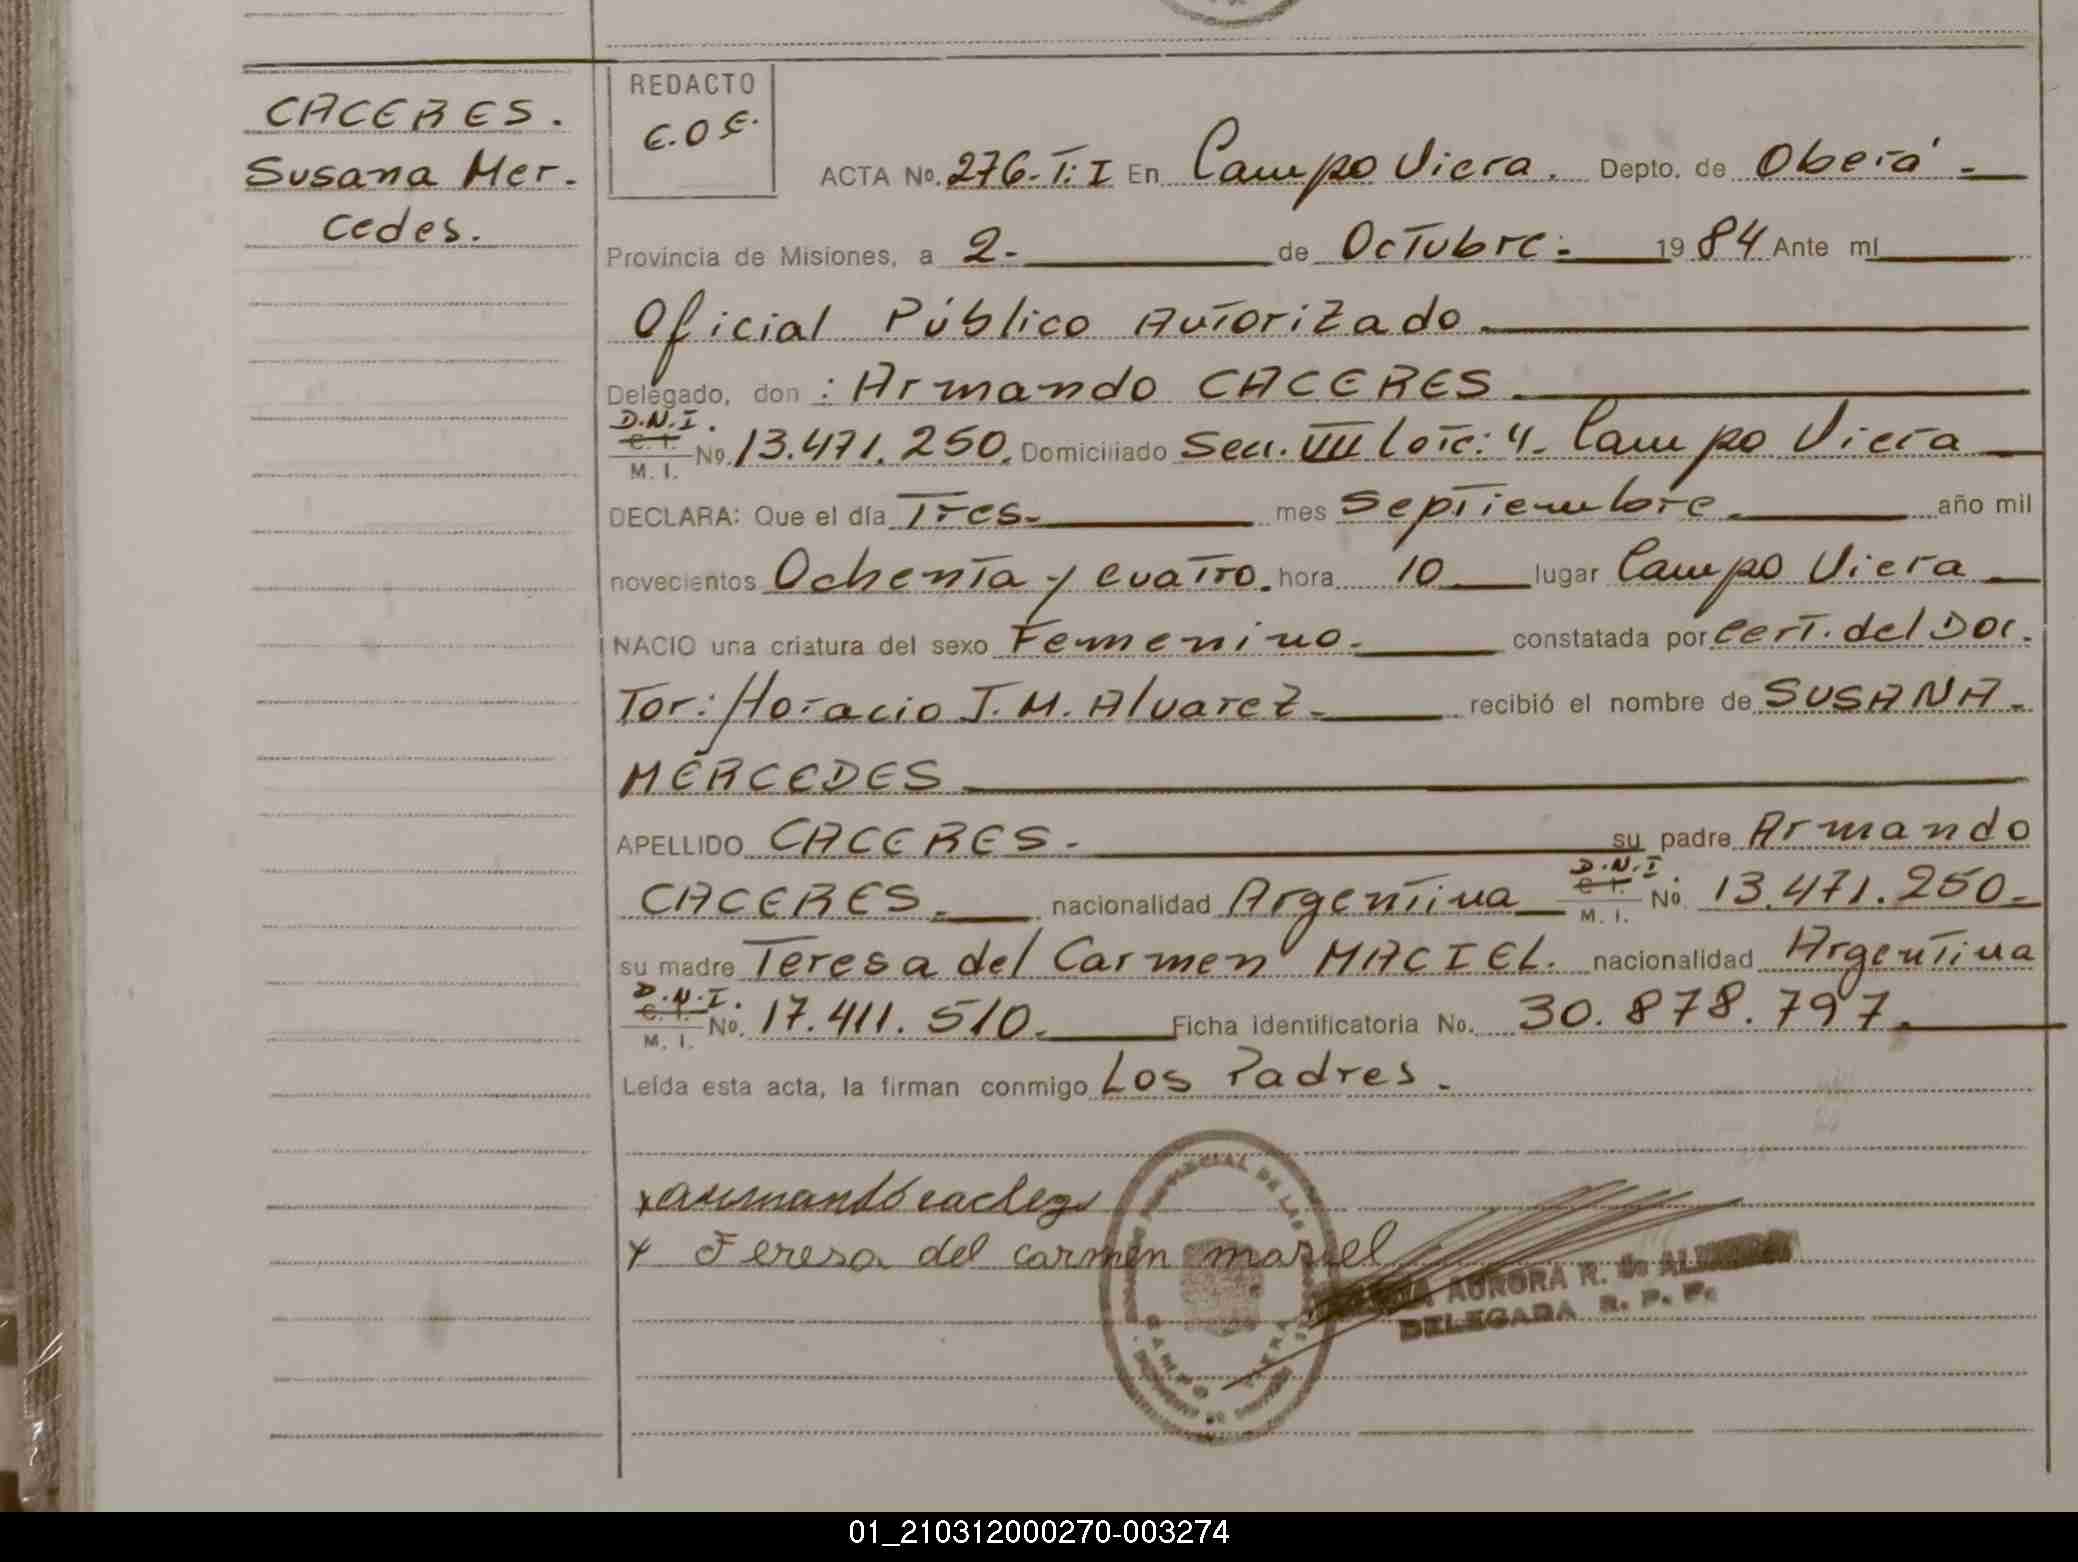 CACERES.
Susana Mer-
cedes.
REDACTO
E.O.E.
ACTA No. 276-T:I En Campo Viera. Depto. de Oberá -
Provincia de Misiones, a 2- de Octubre- 1984 Ante mí
Oficial Público Autorizado
Delegado, don: Armando CACERES
D.N.I.
C. I.
M. I. No. 13.471.250. Domiciliado Secc. VIII Lote: 4. Campo Viera
DECLARA: Que el día Tres- mes Septiembre. año mil
novecientos Ochenta y cuatro. hora 10 lugar Campo Viera
NACIO una criatura del sexo Femenino- constatada por cert. del Doc.
Tor: Horacio J. M. Alvarez- recibió el nombre de SUSANA-
MERCEDES
APELLIDO CACERES- su padre Armando
CACERES- nacionalidad Argentina D.N.I. C. I. M. I. No. 13.471.250-
su madre Teresa del Carmen MACIEL. nacionalidad Argentina
D.N.I.
C. I.
M. I. No. 17.411.510. Ficha identificatoria No. 30.878.797.
Leída esta acta, la firman conmigo Los Padres.
x armando caceres
x Teresa del carmen masiel
AURORA R. de
DELEGADA R. P. P.
CAMPO VIERA
01_210312000270-003274